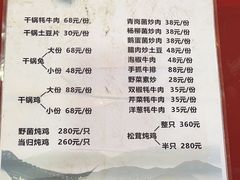 干锅牦牛肉 68元/份
干锅土豆片 30元/份
干锅兔
大份 68元/份
小份 48元/份
干锅鸡
大份 88元/份
小份 68元/份
野菌炖鸡 280元/只
当归炖鸡 260元/只
青岗菌炒肉 38元/份
杨柳菌炒肉 38元/份
鹅蛋菌炒肉 38元/份
腊肉炒土豆 48元/份
泡椒牛肉 48元/份
手抓牛排 88元/份
野菜素炒 28元/份
双椒牦牛肉 35元/份
芹菜牦牛肉 35元/份
洋葱牦牛肉 35元/份
松茸炖鸡
整只 360元
半只 280元